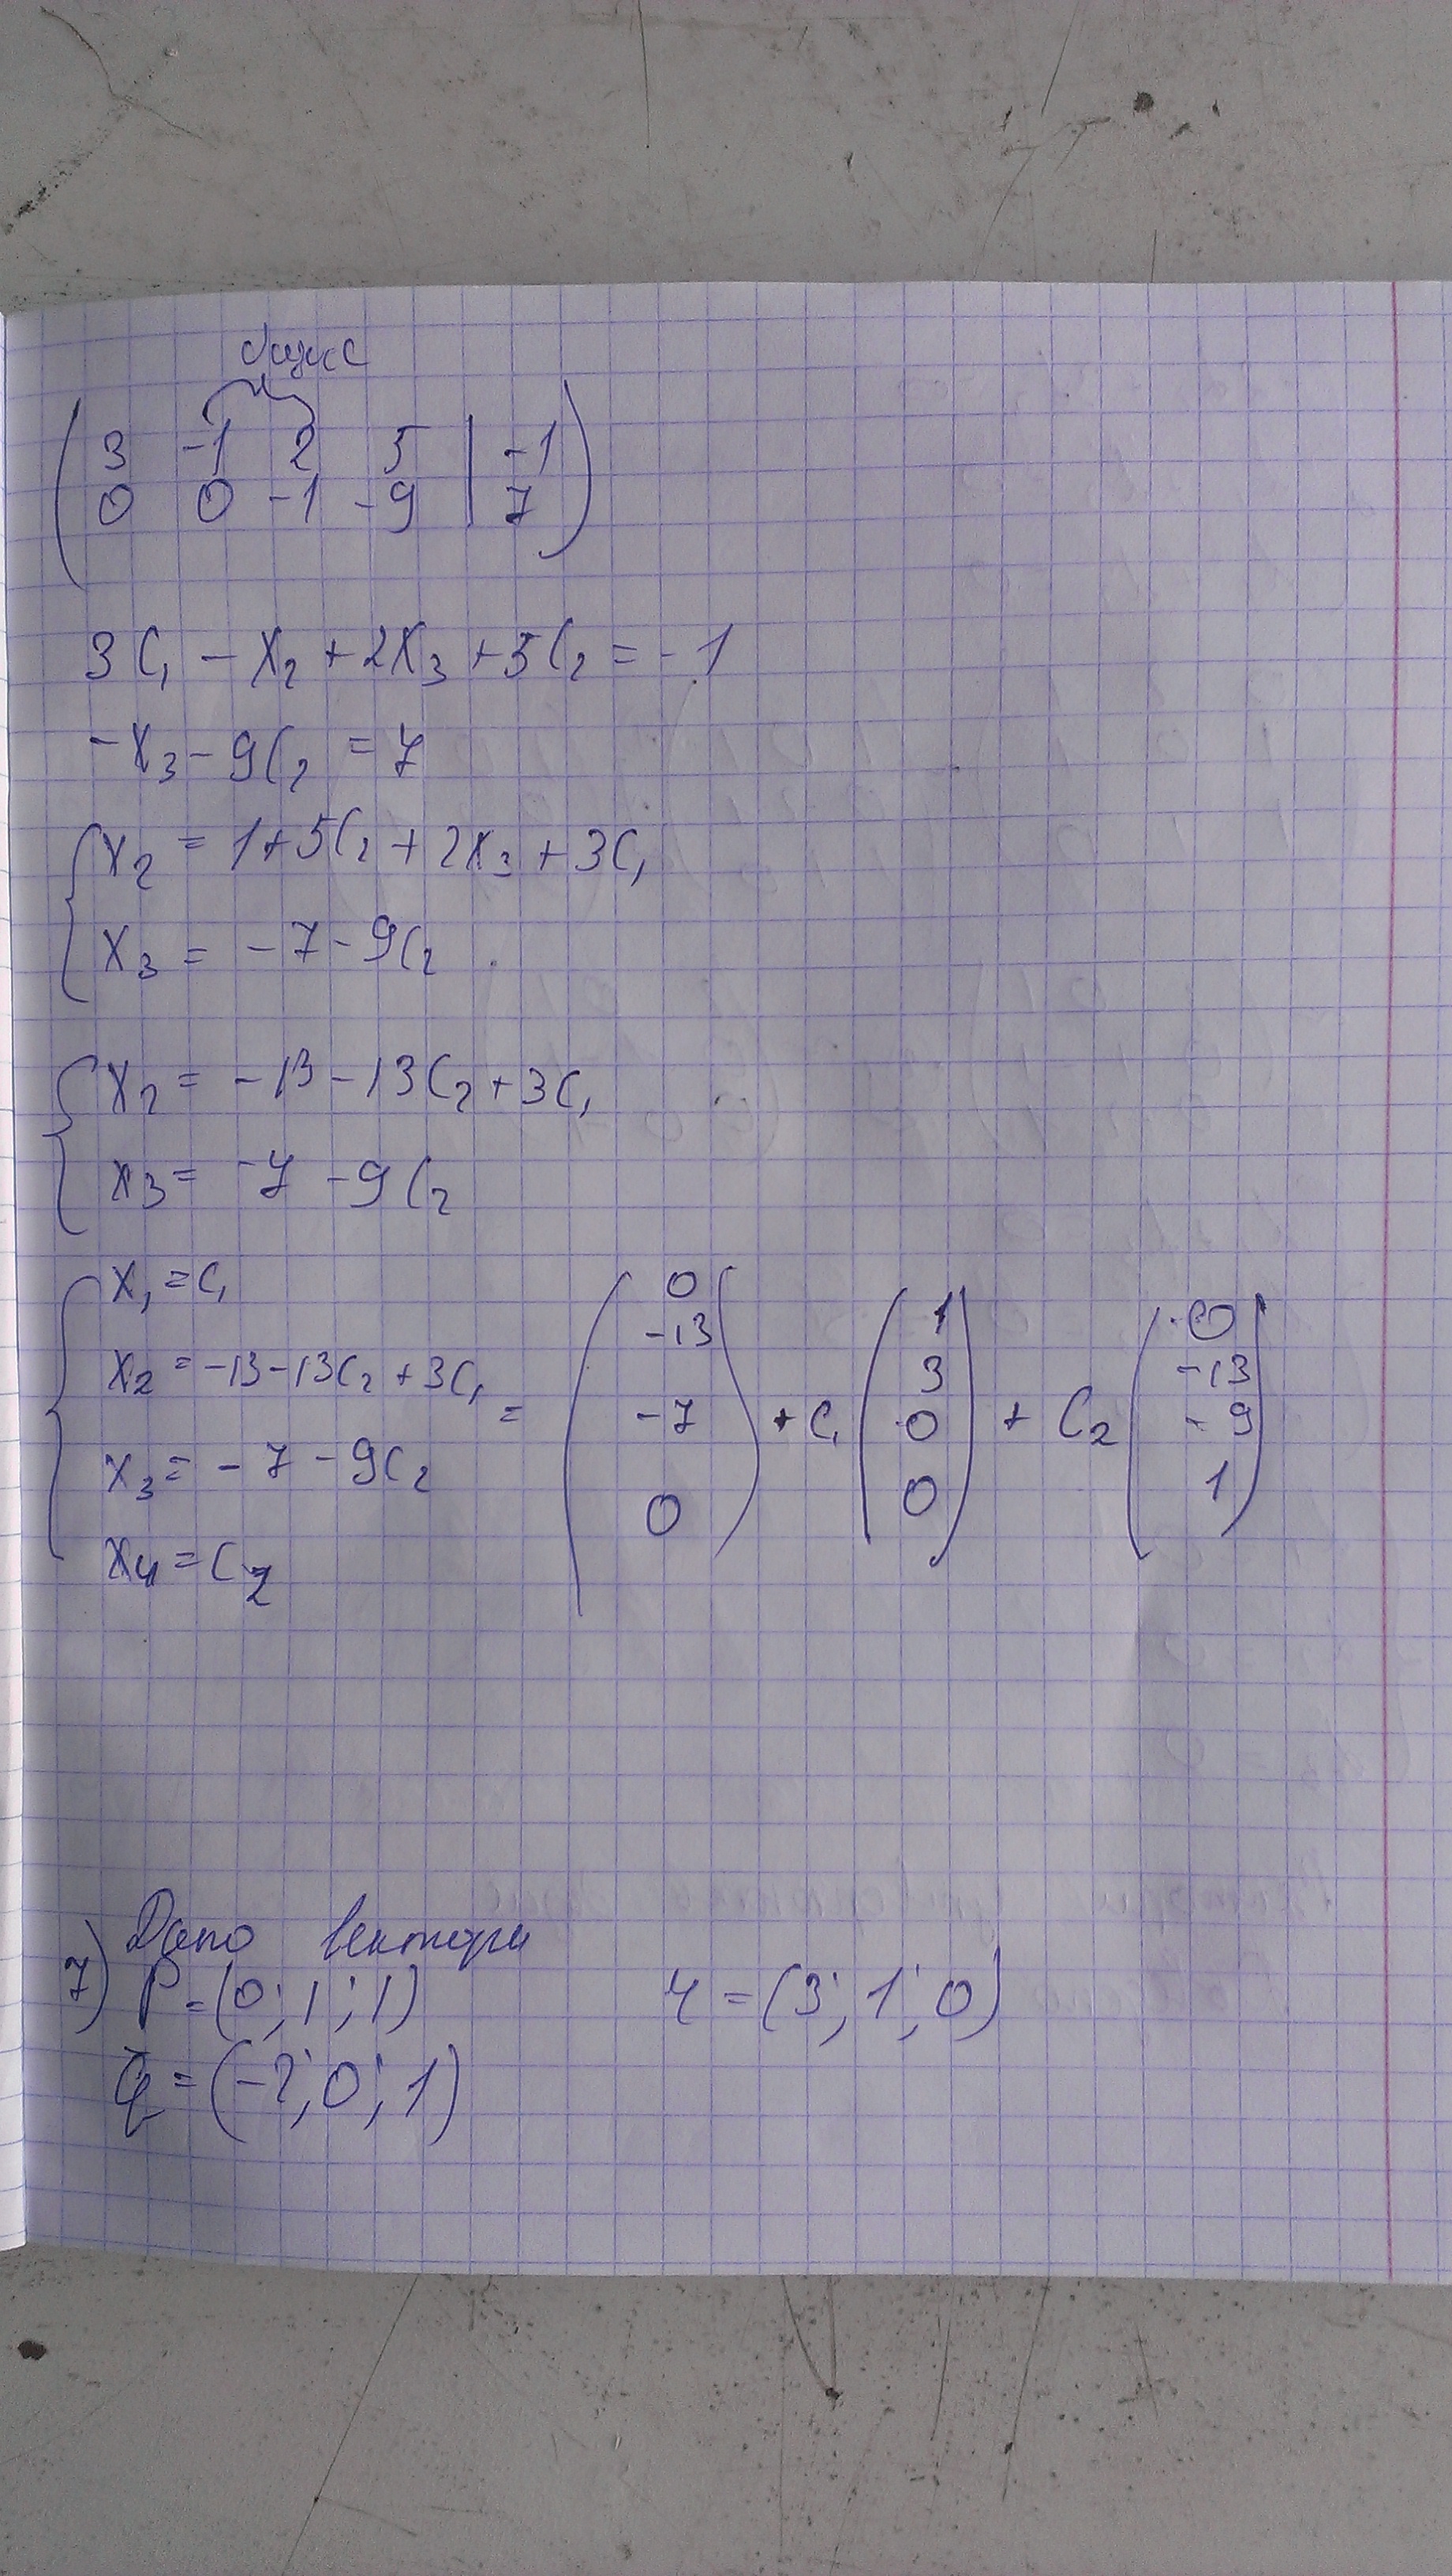 базис
( 3 -1 2 5 | -1 )
( 0 0 -1 -9 | 7 )
3C₁ - X₂ + 2X₃ + 5C₂ = -1
-X₃ - 9C₂ = 7
{ X₂ = 1 + 5C₂ + 2X₃ + 3C₁
X₃ = -7 - 9C₂
{ X₂ = -13 - 13C₂ + 3C₁
X₃ = -7 - 9C₂
{ X₁ = C₁
X₂ = -13 - 13C₂ + 3C₁
X₃ = -7 - 9C₂
X₄ = C₂
= ( 0 -13 -7 0 ) + C₁ ( 1 3 0 0 ) + C₂ ( 0 -13 -9 1 )
7) Дано вектори
P = (0; 1; 1) r = (3; 1; 0)
q = (-2; 0; 1)